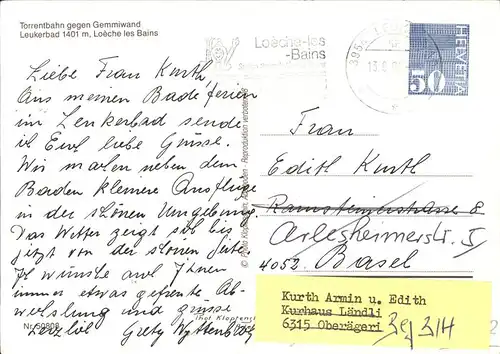 Torrentbahn gegen Gemmiwand
Leukerbad 1401 m, Loèche les Bains
Loèche-les
-Bains
HELVETIA
50
Liebe Frau Kurth,
Aus meinen Badeferien
im Leukerbad sende
ich Euch liebe Grüsse.
Wir machen neben dem
Baden kleinere Ausflüge
in der schönen Umgebung.
Das Wetter zeigt sich bis
jetzt von der schönen Seite.
Ich wünsche auch Ihnen
immer etwas gefreute Ab-
wechslung und grüsse
Herzlich Grety Wyttenbach
Nr. 50808
Reproduktion verboten
Frau
Edith Kurth
Ramsteinerstrasse 8
Arlesheimerstr. 5
4052 Basel
Kurth Armin u. Edith
Kurhaus Ländli
6315 Oberägeri
314